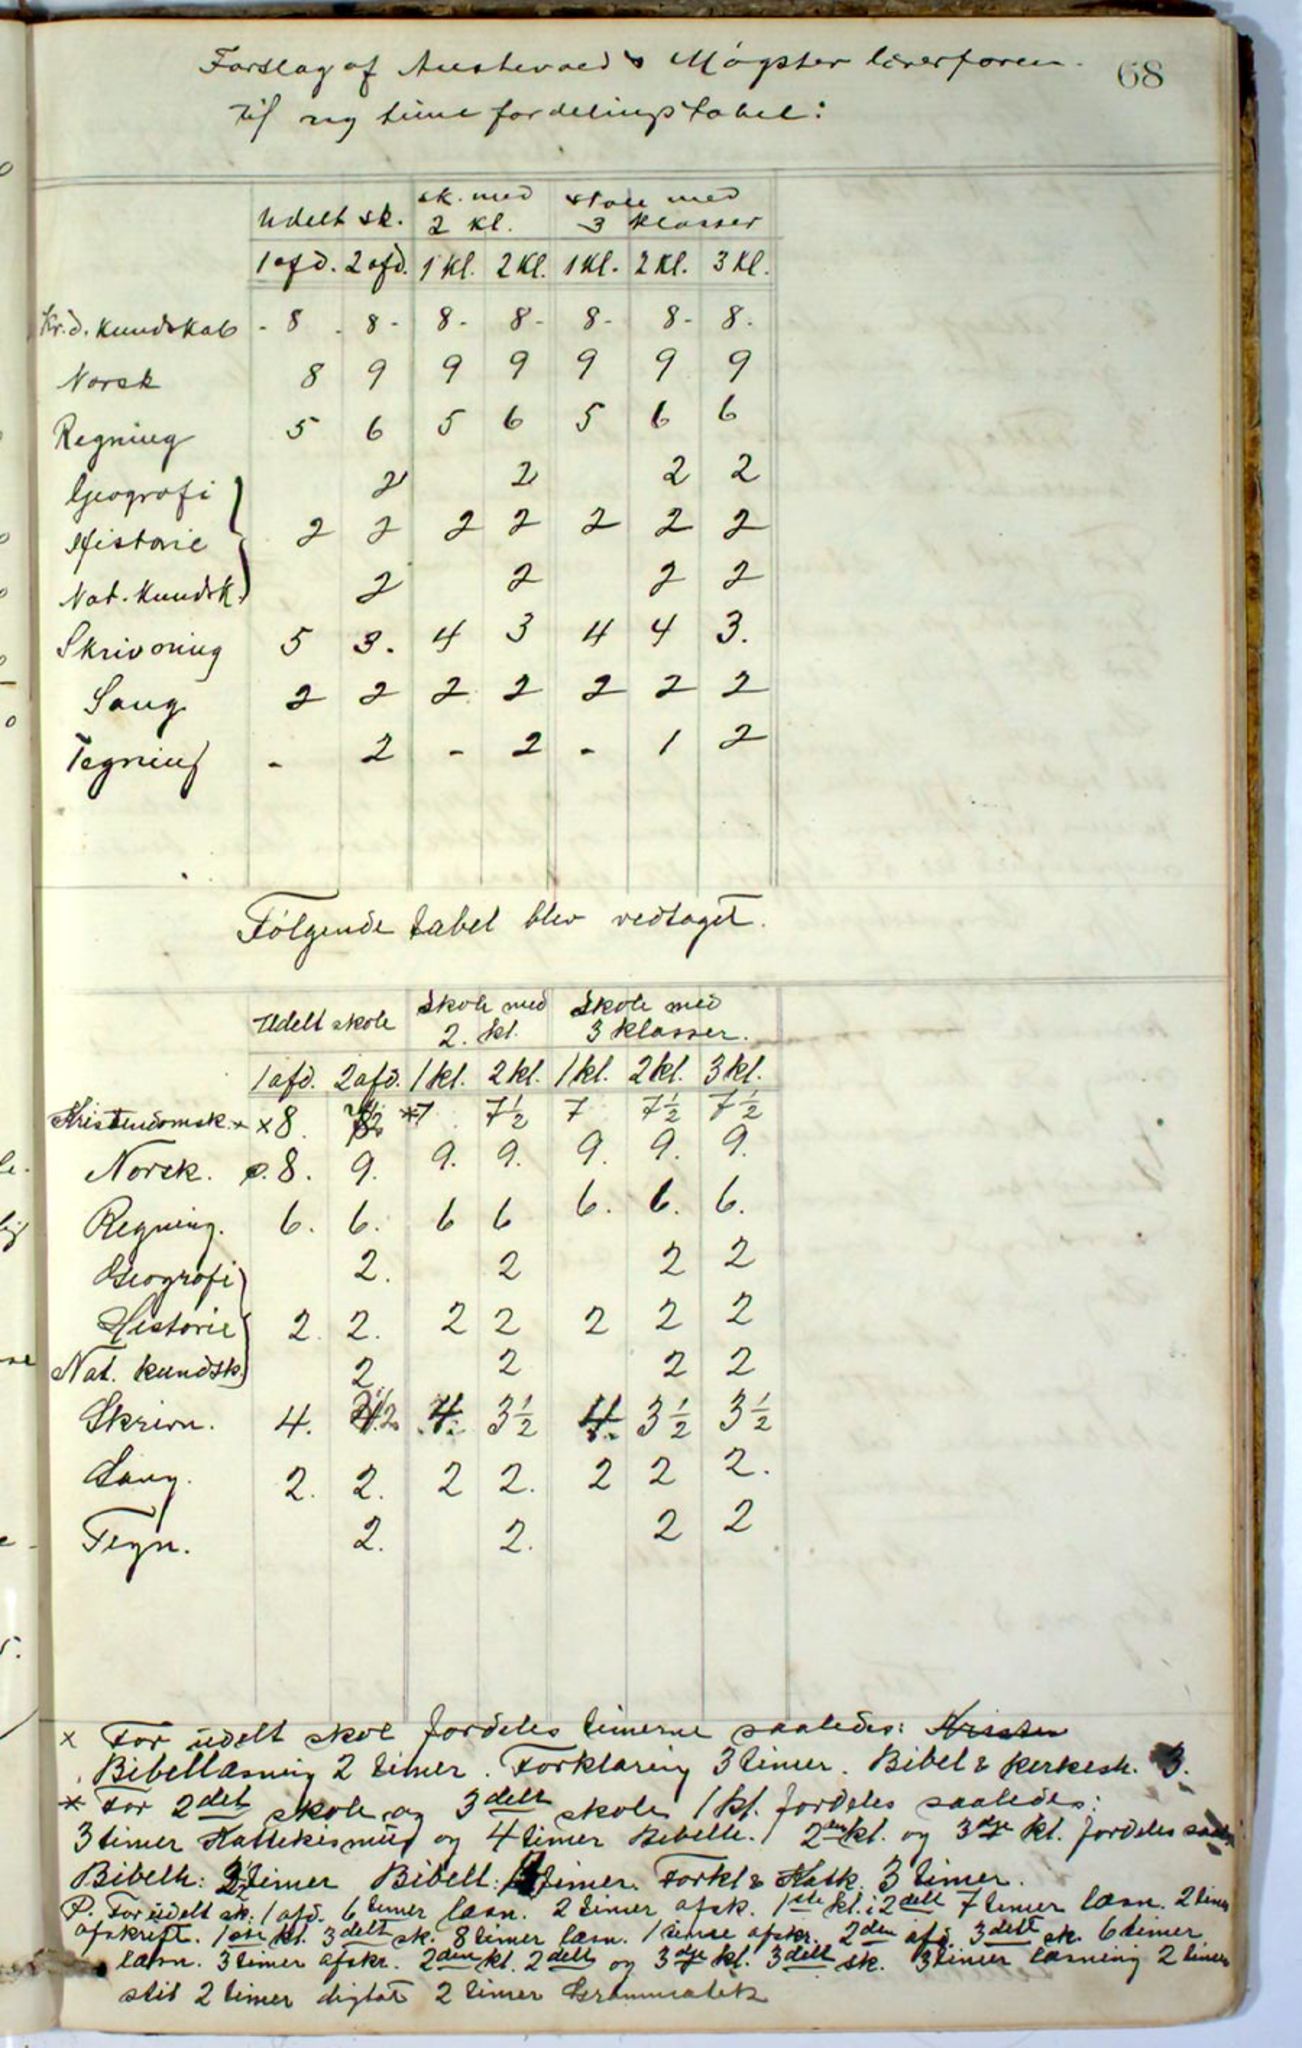 68
Forslag af Austevold & Møgster lærerforen.
til ny timefordelingstabel:
Udelt sk. sk. med 2 kl. skole med 3 klasser
1 afd. 2 afd. 1 kl. 2 kl. 1 kl. 2 kl. 3 kl.
Kr.d. kundskab - 8 - 8 - 8 - 8 - 8 - 8 - 8.
Norsk 8 9 9 9 9 9 9
Regning 5 6 5 6 5 6 6
Geografi 2 2 2 2
Historie 2 2 2 2 2 2 2
Nat. kundsk. 2 2 2 2
Skrivning 5 3. 4 3 4 4 3.
Sang 2 2 2 2 2 2 2
Tegning - 2 - 2 - 1 2
Følgende tabel blev vedtaget.
Udelt skole Skole med 2. kl. Skole med 3 klasser.
1 afd. 2 afd. 1 kl. 2 kl. 1 kl. 2 kl. 3 kl.
Kristendomsk. x 8. *7 7½ 7 7½ 7½
Norsk. 8. 9. 9. 9. 9. 9. 9.
Regning. 6. 6. 6 6 6. 6. 6.
Geografi 2. 2 2 2
Historie 2. 2. 2 2 2 2 2
Nat. kundsk. 2 2 2 2
Skrivn. 4. 4. 3½ 4. 3½ 3½
Sang. 2. 2. 2 2. 2 2 2.
Tegn. 2. 2. 2 2
x For udelt skole fordeles timerne saaledes:
Bibellæsning 2 timer. Forklaring 3 timer. Bibel & kirkesh. 3.
* For 2delt skole og 3delt skole 1 kl. fordeles saaledes:
3 timer Kattekismus og 4 timer Bibelh. I 2den kl. og 3dje kl. fordeles
Bibelh: timer Bibell: timer. Forkl & Katk. 3 timer.
For udelt sk. 1 afd. 6 timer læsn. 2 timer afsk. 1ste kl. i 2delt 7 timer læsn. 2 timer
afskrift. 1ste kl. 3delt sk. 8 timer læsn. 1 time afskr. 2den afd. 3delt sk. 6 timer
læsn. 3 timer afskr. 2den kl. 2delt og 3dje kl. 3delt sk. 3 timer læsning 2 timer
stil 2 timer digtat 2 timer Grammatik